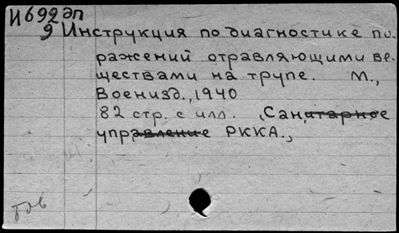 И692эп
9 Инструкция по диагностике по-
ражений отравляющими ве-
ществами на трупе. М.,
Военизд., 1940
82 стр. с илл. (Санитарное
управление РККА.)